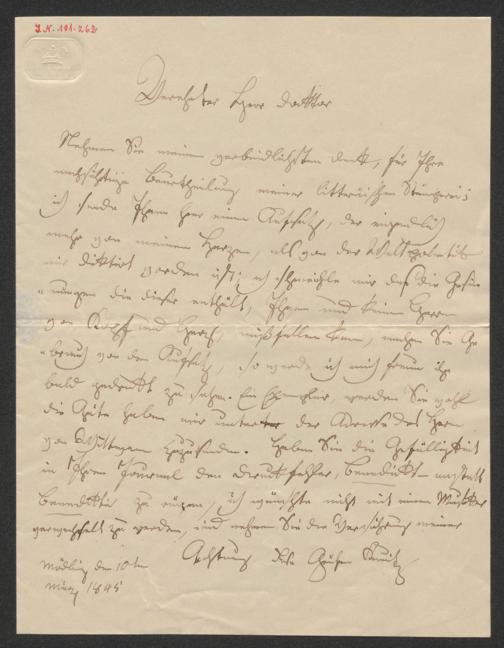 I.N. 191.262
Verehrter Herr Doktor
Nehmen Sie meinen verbindlichsten Dank, für Ihre
nachsichtige Beurtheilung meiner litterarischen
ich sende Ihnen hier einen Aufsatz, der eigendlich
mehr von meinem Herzen, als von der
mir diktirt worden ist; ich schmeichle mir daß die Gesin
nungen die dieser enthält, Ihnen und keinem Herrn
von Kopf und Herz, mißfallen kann, machen Sie Ge
brauch von dem Aufsatz, so werde ich mich freuen ihn
bald gedruckt zu sehen. Ein Exemplar, werden Sie wohl
die Güte haben mir unter der Adresse des Herrn
von zuzusenden. Haben Sie die Gefälligkeit
in Ihrem Journal den Druckfehler, Benedikt anstatt
Benedetti zu rügen, ich wünschte nicht mit einem Musiker
verwechselt zu werden, und nehmen Sie die Versicherung meiner
Achtung
Mödling den 10ten
März 1845